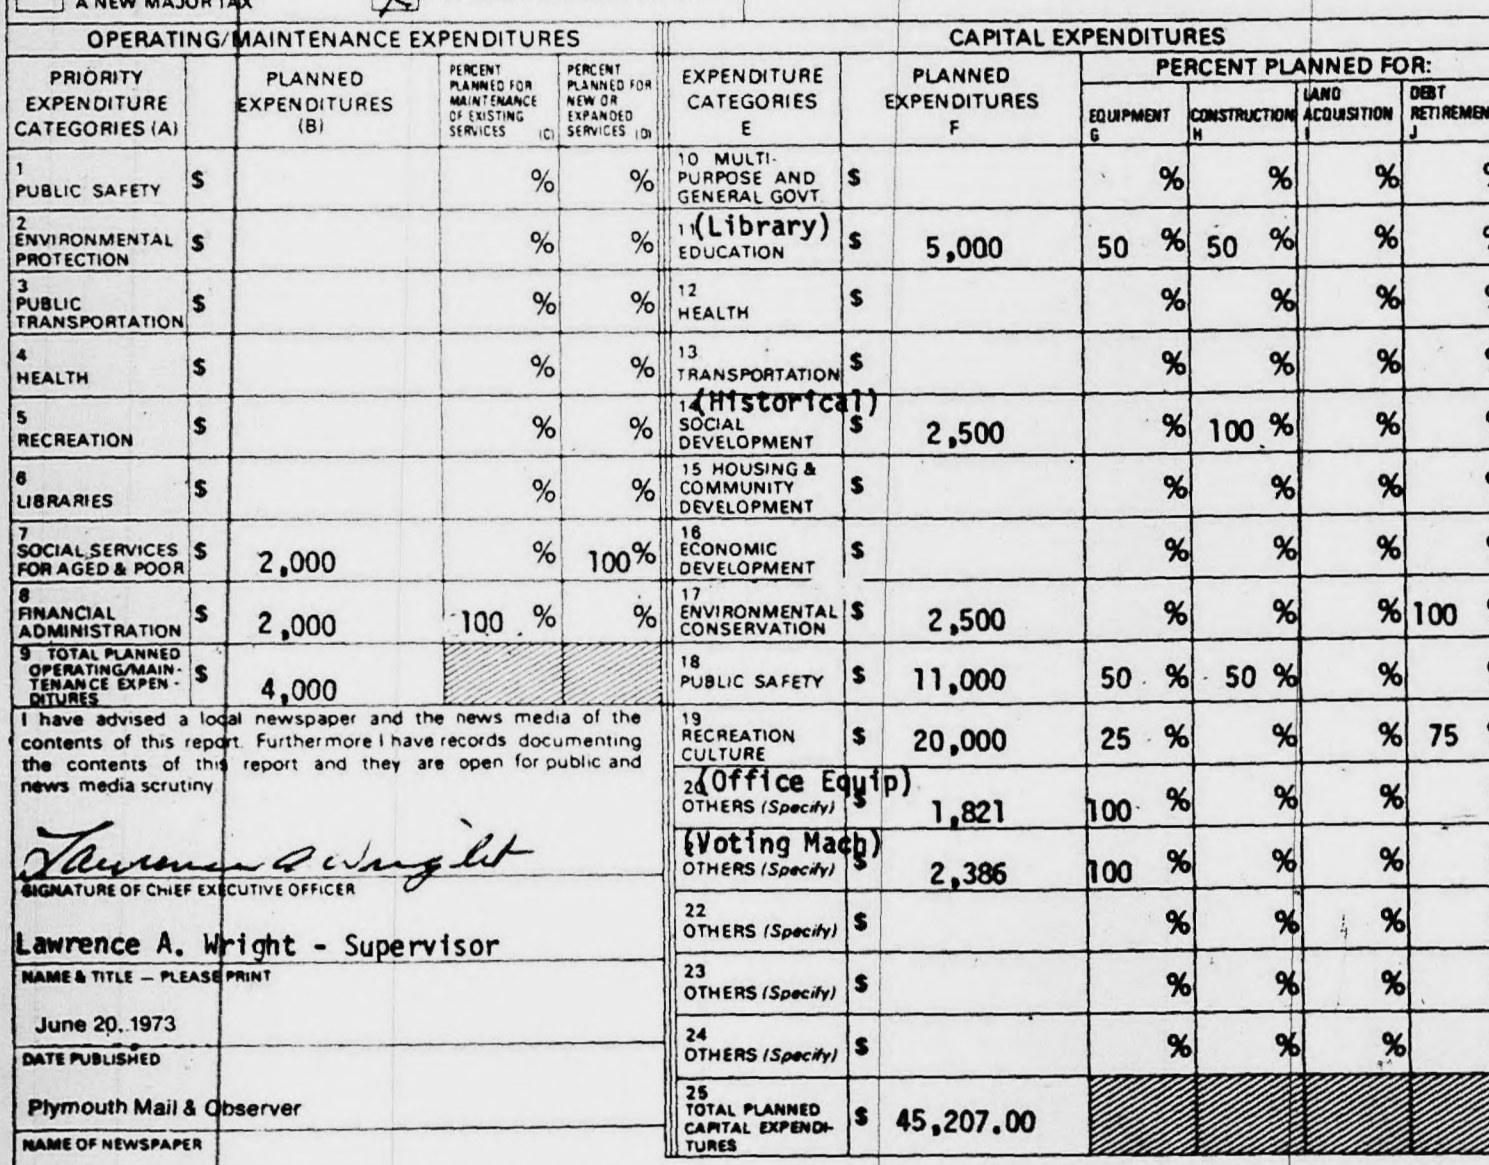 A NEW MAJOR TAX
OPERATING/MAINTENANCE EXPENDITURES
PRIORITY EXPENDITURE CATEGORIES (A)
PLANNED EXPENDITURES (B)
PERCENT PLANNED FOR MAINTENANCE OF EXISTING SERVICES (C)
PERCENT PLANNED FOR NEW OR EXPANDED SERVICES (D)
1 PUBLIC SAFETY $ % %
2 ENVIRONMENTAL PROTECTION $ % %
3 PUBLIC TRANSPORTATION $ % %
4 HEALTH $ % %
5 RECREATION $ % %
6 LIBRARIES $ % %
7 SOCIAL SERVICES FOR AGED & POOR $ 2,000 % 100%
8 FINANCIAL ADMINISTRATION $ 2,000 100 % %
9 TOTAL PLANNED OPERATING/MAIN-
TENANCE EXPEN-
DITURES $ 4,000
I have advised a local newspaper and the news media of the
contents of this report. Furthermore I have records documenting
the contents of this report and they are open for public and
news media scrutiny
Lawrence A Wright
SIGNATURE OF CHIEF EXECUTIVE OFFICER
Lawrence A. Wright - Supervisor
NAME & TITLE — PLEASE PRINT
June 20, 1973
DATE PUBLISHED
Plymouth Mail & Observer
NAME OF NEWSPAPER
CAPITAL EXPENDITURES
EXPENDITURE CATEGORIES E
PLANNED EXPENDITURES F
PERCENT PLANNED FOR:
EQUIPMENT G
CONSTRUCTION H
LAND ACQUISITION I
DEBT RETIREMEN J
10 MULTI-
PURPOSE AND
GENERAL GOVT. $ % % %
11 (Library)
EDUCATION $ 5,000 50 % 50 % %
12 HEALTH $ % % %
13 TRANSPORTATION $ % % %
14 (Historical)
SOCIAL DEVELOPMENT $ 2,500 % 100 % %
15 HOUSING & COMMUNITY DEVELOPMENT $ % % %
16 ECONOMIC DEVELOPMENT $ % % %
17 ENVIRONMENTAL CONSERVATION $ 2,500 % % % 100
18 PUBLIC SAFETY $ 11,000 50 % 50 % %
19 RECREATION CULTURE $ 20,000 25 % % % 75
20 (Office Equip)
OTHERS (Specify) $ 1,821 100 % % %
(Voting Mach)
OTHERS (Specify) $ 2,386 100 % % %
22 OTHERS (Specify) $ % % %
23 OTHERS (Specify) $ % % %
24 OTHERS (Specify) $ % % %
25 TOTAL PLANNED
CAPITAL EXPENDI-
TURES $ 45,207.00